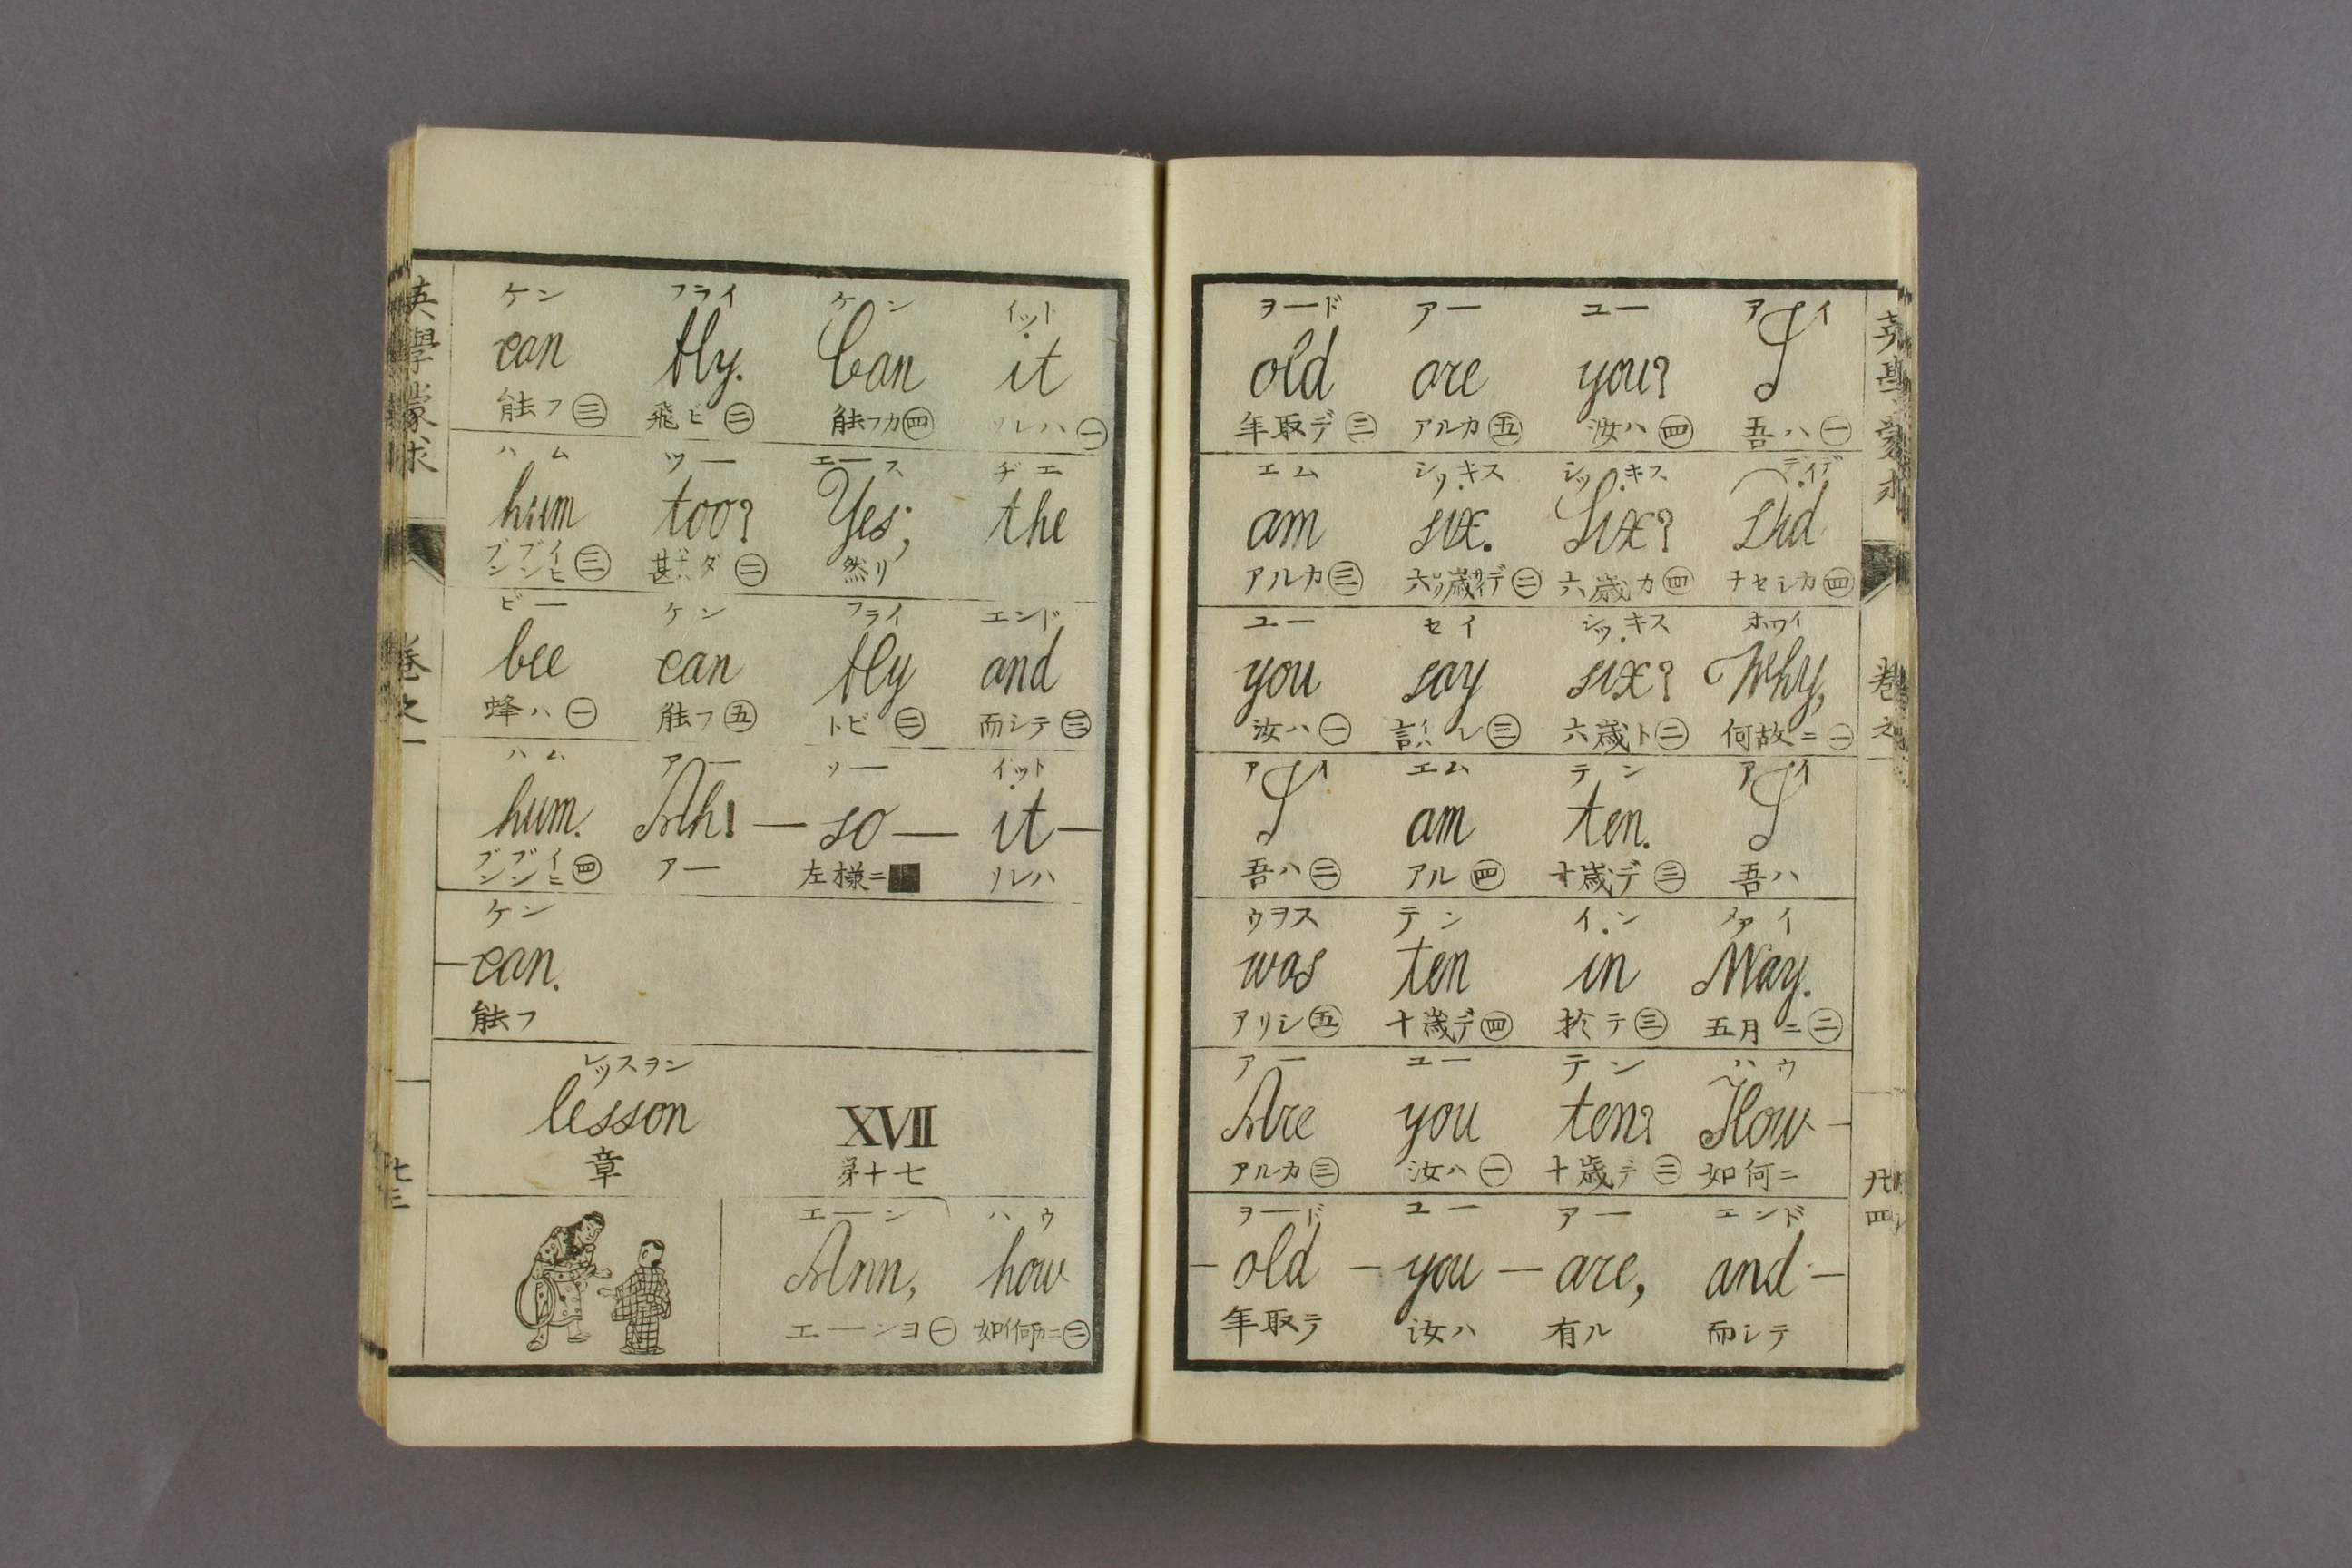 英學蒙求
卷之一
廿三
ケン フライ ケン イット
can fly. Can it
能フ㊂ 飛ビ㊁ 能フカ㊃ ソレハ㊀
ハム ツー エース ヂエ
hum too? Yes; the
ブンブンイヒ㊂ 甚ダ㊁ 然リ
ビー ケン フライ エンド
bee can fly and
蜂ハ㊀ 能フ㊄ トビ㊁ 而シテ㊂
ハム アー ソー イット
hum. Ah! — so — it —
ブンブンイヒ㊃ アー 左様ニ ソレハ
ケン
— can.
能フ
レッスヲン
lesson XVII
章 第十七
エーン ハウ
Ann, how
エーンヨ㊀ 如何ニ㊁
ヲード アー ユー アイ
old are you? I
年取デ㊂ アルカ㊄ 汝ハ㊃ 吾ハ㊀
エム シッキス シッキス ディデ
am six. Six? Did
アルカ㊂ 六歳デ㊁ 六歳カ㊃ ナセシカ㊃
ユー セイ シッキス ホワイ
you say six? Why,
汝ハ㊀ 言ハレ㊂ 六歳ト㊁ 何故ニ㊀
アイ エム テン アイ
I am ten. I
吾ハ㊁ アル㊃ 十歳デ㊂ 吾ハ
ウヲス テン イン メァイ
was ten in May.
アリシ㊄ 十歳デ㊃ 於テ㊂ 五月ニ㊁
アー ユー テン ハウ
Are you ten? How —
アルカ㊂ 汝ハ㊀ 十歳デ㊁ 如何ニ
ヲード ユー アー エンド
— old — you — are, and —
年取テ 汝ハ 有ル 而シテ
卷之
廿四